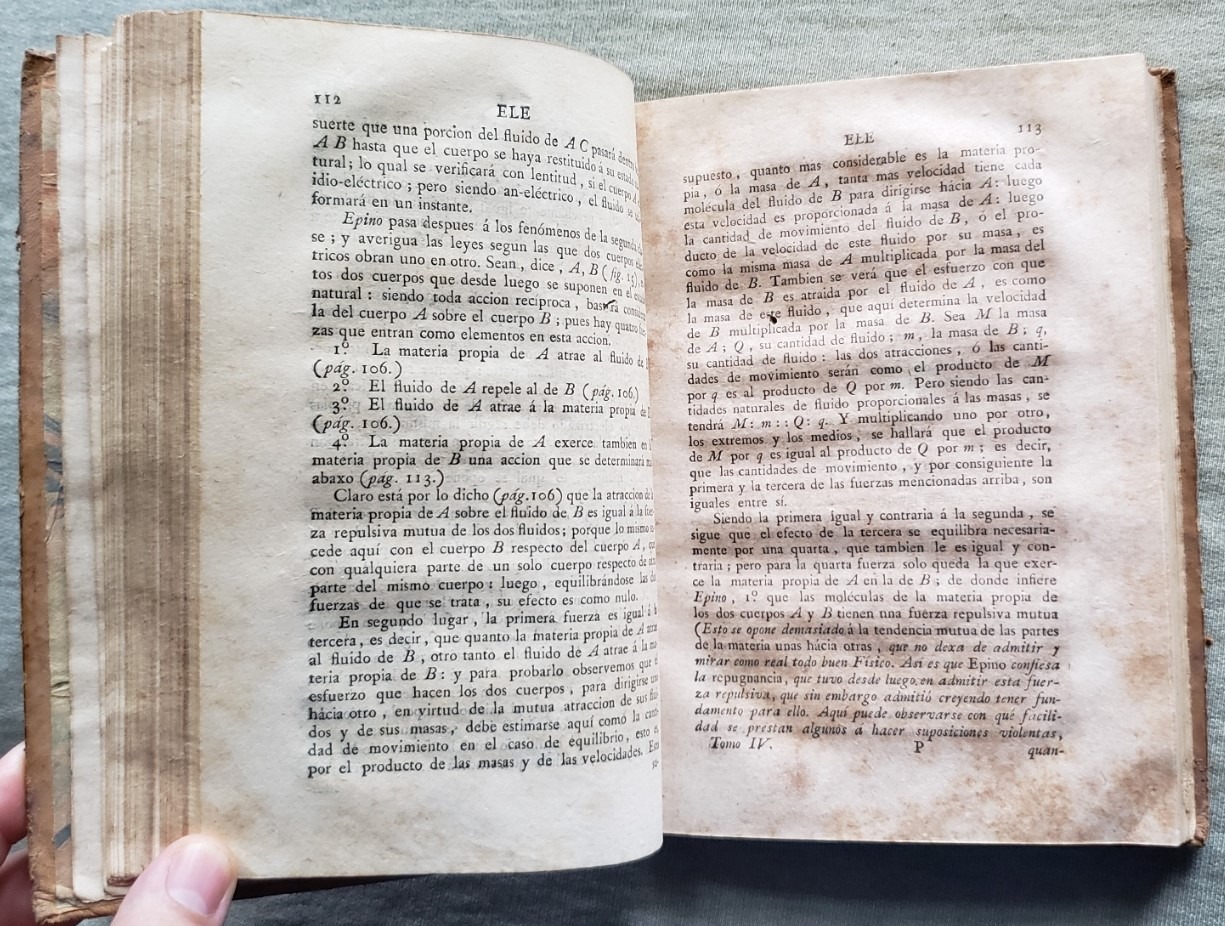 112
ELE
suerte que una porcion del fluido de A C pasará
A B hasta que el cuerpo se haya restituido á su
tural; lo qual se verificará con lentitud, si el cuerpo
idio-eléctrico; pero siendo an-eléctrico, el fluido se
formará en un instante.
Epino pasa despues á los fenómenos de la segunda
se; y averigua las leyes segun las que dos cuerpos
tricos obran uno en otro. Sean, dice, A, B (fig. 15)
tos dos cuerpos que desde luego se suponen en el
natural: siendo toda accion recíproca, bastará
la del cuerpo A sobre el cuerpo B; pues hay quatro
zas que entran como elementos en esta accion.
1º. La materia propia de A atrae al fluido de
(pág. 106.)
2º. El fluido de A repele al de B (pág. 106.)
3º. El fluido de A atrae á la materia propia de
(pág. 106.)
4º. La materia propia de A exerce tambien en
materia propia de B una accion que se determinará
abaxo (pág. 113.)
Claro está por lo dicho (pág. 106) que la atraccion de
materia propia de A sobre el fluido de B es igual á la
za repulsiva mutua de los dos fluidos; porque lo mismo
cede aquí con el cuerpo B respecto del cuerpo A,
con qualquiera parte de un solo cuerpo respecto de
parte del mismo cuerpo: luego, equilibrándose las
fuerzas de que se trata, su efecto es como nulo.
En segundo lugar, la primera fuerza es igual á
tercera, es decir, que quanto la materia propia de A
al fluido de B, otro tanto el fluido de A atrae á la
teria propia de B: y para probarlo observemos que
esfuerzo que hacen los dos cuerpos, para dirigirse
hácia otro, en virtud de la mutua atraccion de sus
dos y de sus masas, debe estimarse aquí como la
dad de movimiento en el caso de equilibrio, esto
por el producto de las masas y de las velocidades.
ELE
113
supuesto, quanto mas considerable es la materia pro-
pia, ó la masa de A, tanta mas velocidad tiene cada
molécula del fluido de B para dirigirse hácia A: luego
esta velocidad es proporcionada á la masa de A: luego
la cantidad de movimiento del fluido de B, ó el pro-
ducto de la velocidad de este fluido por su masa, es
como la misma masa de A multiplicada por la masa del
fluido de B. Tambien se verá que el esfuerzo con que
la masa de B es atraida por el fluido de A, es como
la masa de este fluido, que aquí determina la velocidad
de B multiplicada por la masa de B. Sea M la masa
de A; Q, su cantidad de fluido; m, la masa de B; q,
su cantidad de fluido: las dos atracciones, ó las canti-
dades de movimiento serán como el producto de M
por q es al producto de Q por m. Pero siendo las can-
tidades naturales de fluido proporcionales á las masas, se
tendrá M: m:: Q: q. Y multiplicando uno por otro,
los extremos y los medios, se hallará que el producto
de M por q es igual al producto de Q por m; es decir,
que las cantidades de movimiento, y por consiguiente la
primera y la tercera de las fuerzas mencionadas arriba, son
iguales entre sí.
Siendo la primera igual y contraria á la segunda, se
sigue que el efecto de la tercera se equilibra necesaria-
mente por una quarta, que tambien le es igual y con-
traria; pero para la quarta fuerza solo queda la que exer-
ce la materia propia de A en la de B; de donde infiere
Epino, 1º. que las moléculas de la materia propia de
los dos cuerpos A y B tienen una fuerza repulsiva mutua
(Esto se opone demasiado á la tendencia mutua de las partes
de la materia unas hácia otras, que no dexa de admitir y
mirar como real todo buen Físico. Así es que Epino confiesa
la repugnancia, que tuvo desde luego en admitir esta fuer-
za repulsiva, que sin embargo admitió creyendo tener fun-
damento para ello. Aquí puede observarse con qué facili-
dad se prestan algunos a hacer suposiciones violentas,
Tomo IV. P quan-